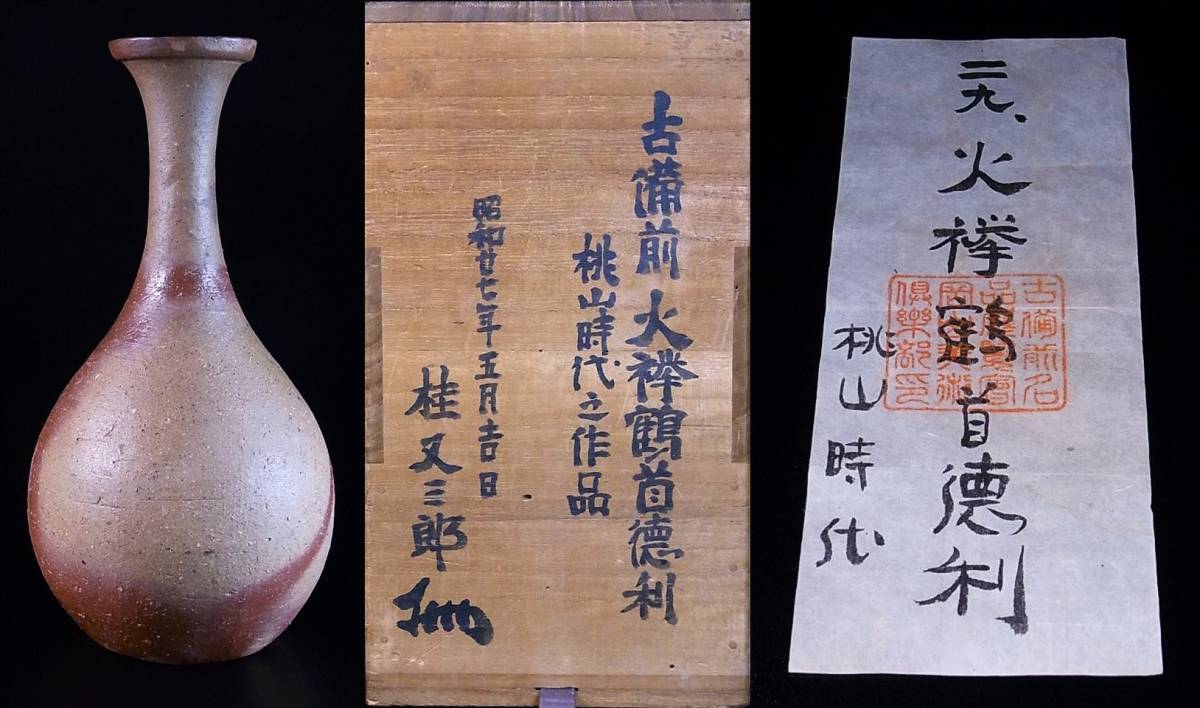 古備前火襷鶴首徳利
桃山時代之作品
昭和廿七年五月吉日
桂又三郎
二九、火襷鶴首徳利
桃山時代
古備前名
倶楽部印